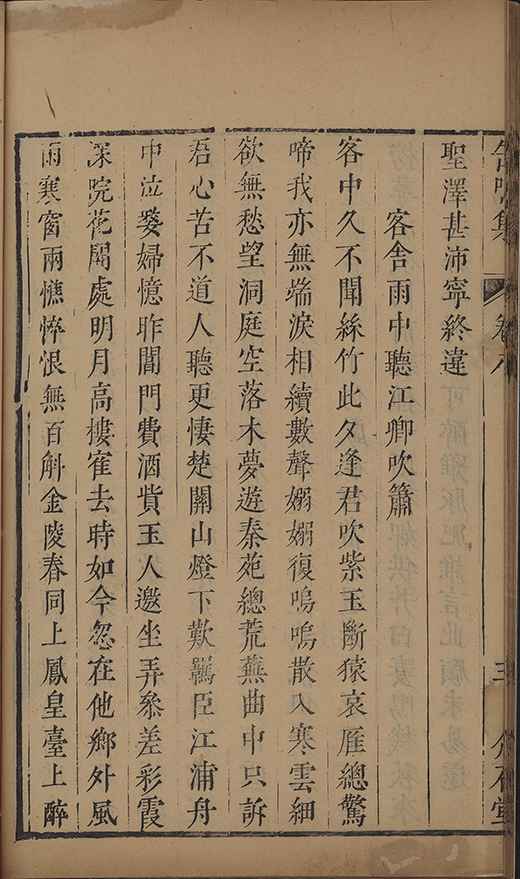 集 卷八 三
聖澤甚沛寧終違
客舍雨中聽江卿吹簫
客中久不聞絲竹此夕逢君吹紫玉斷猿哀雁總驚
啼我亦無端淚相續數聲嫋嫋復嗚嗚散入寒雲細
欲無愁望洞庭空落木夢遊秦苑總荒蕪曲中只訴
吾心苦不道人聽更悽楚關山燈下歎羈臣江浦舟
中泣嫠婦憶昨閶門費酒貲玉人邀坐弄叅差彩霞
深院花開處明月高樓寉去時如今忽在他鄉外風
雨寒窗兩憔悴恨無百斛金陵春同上鳳皇臺上醉